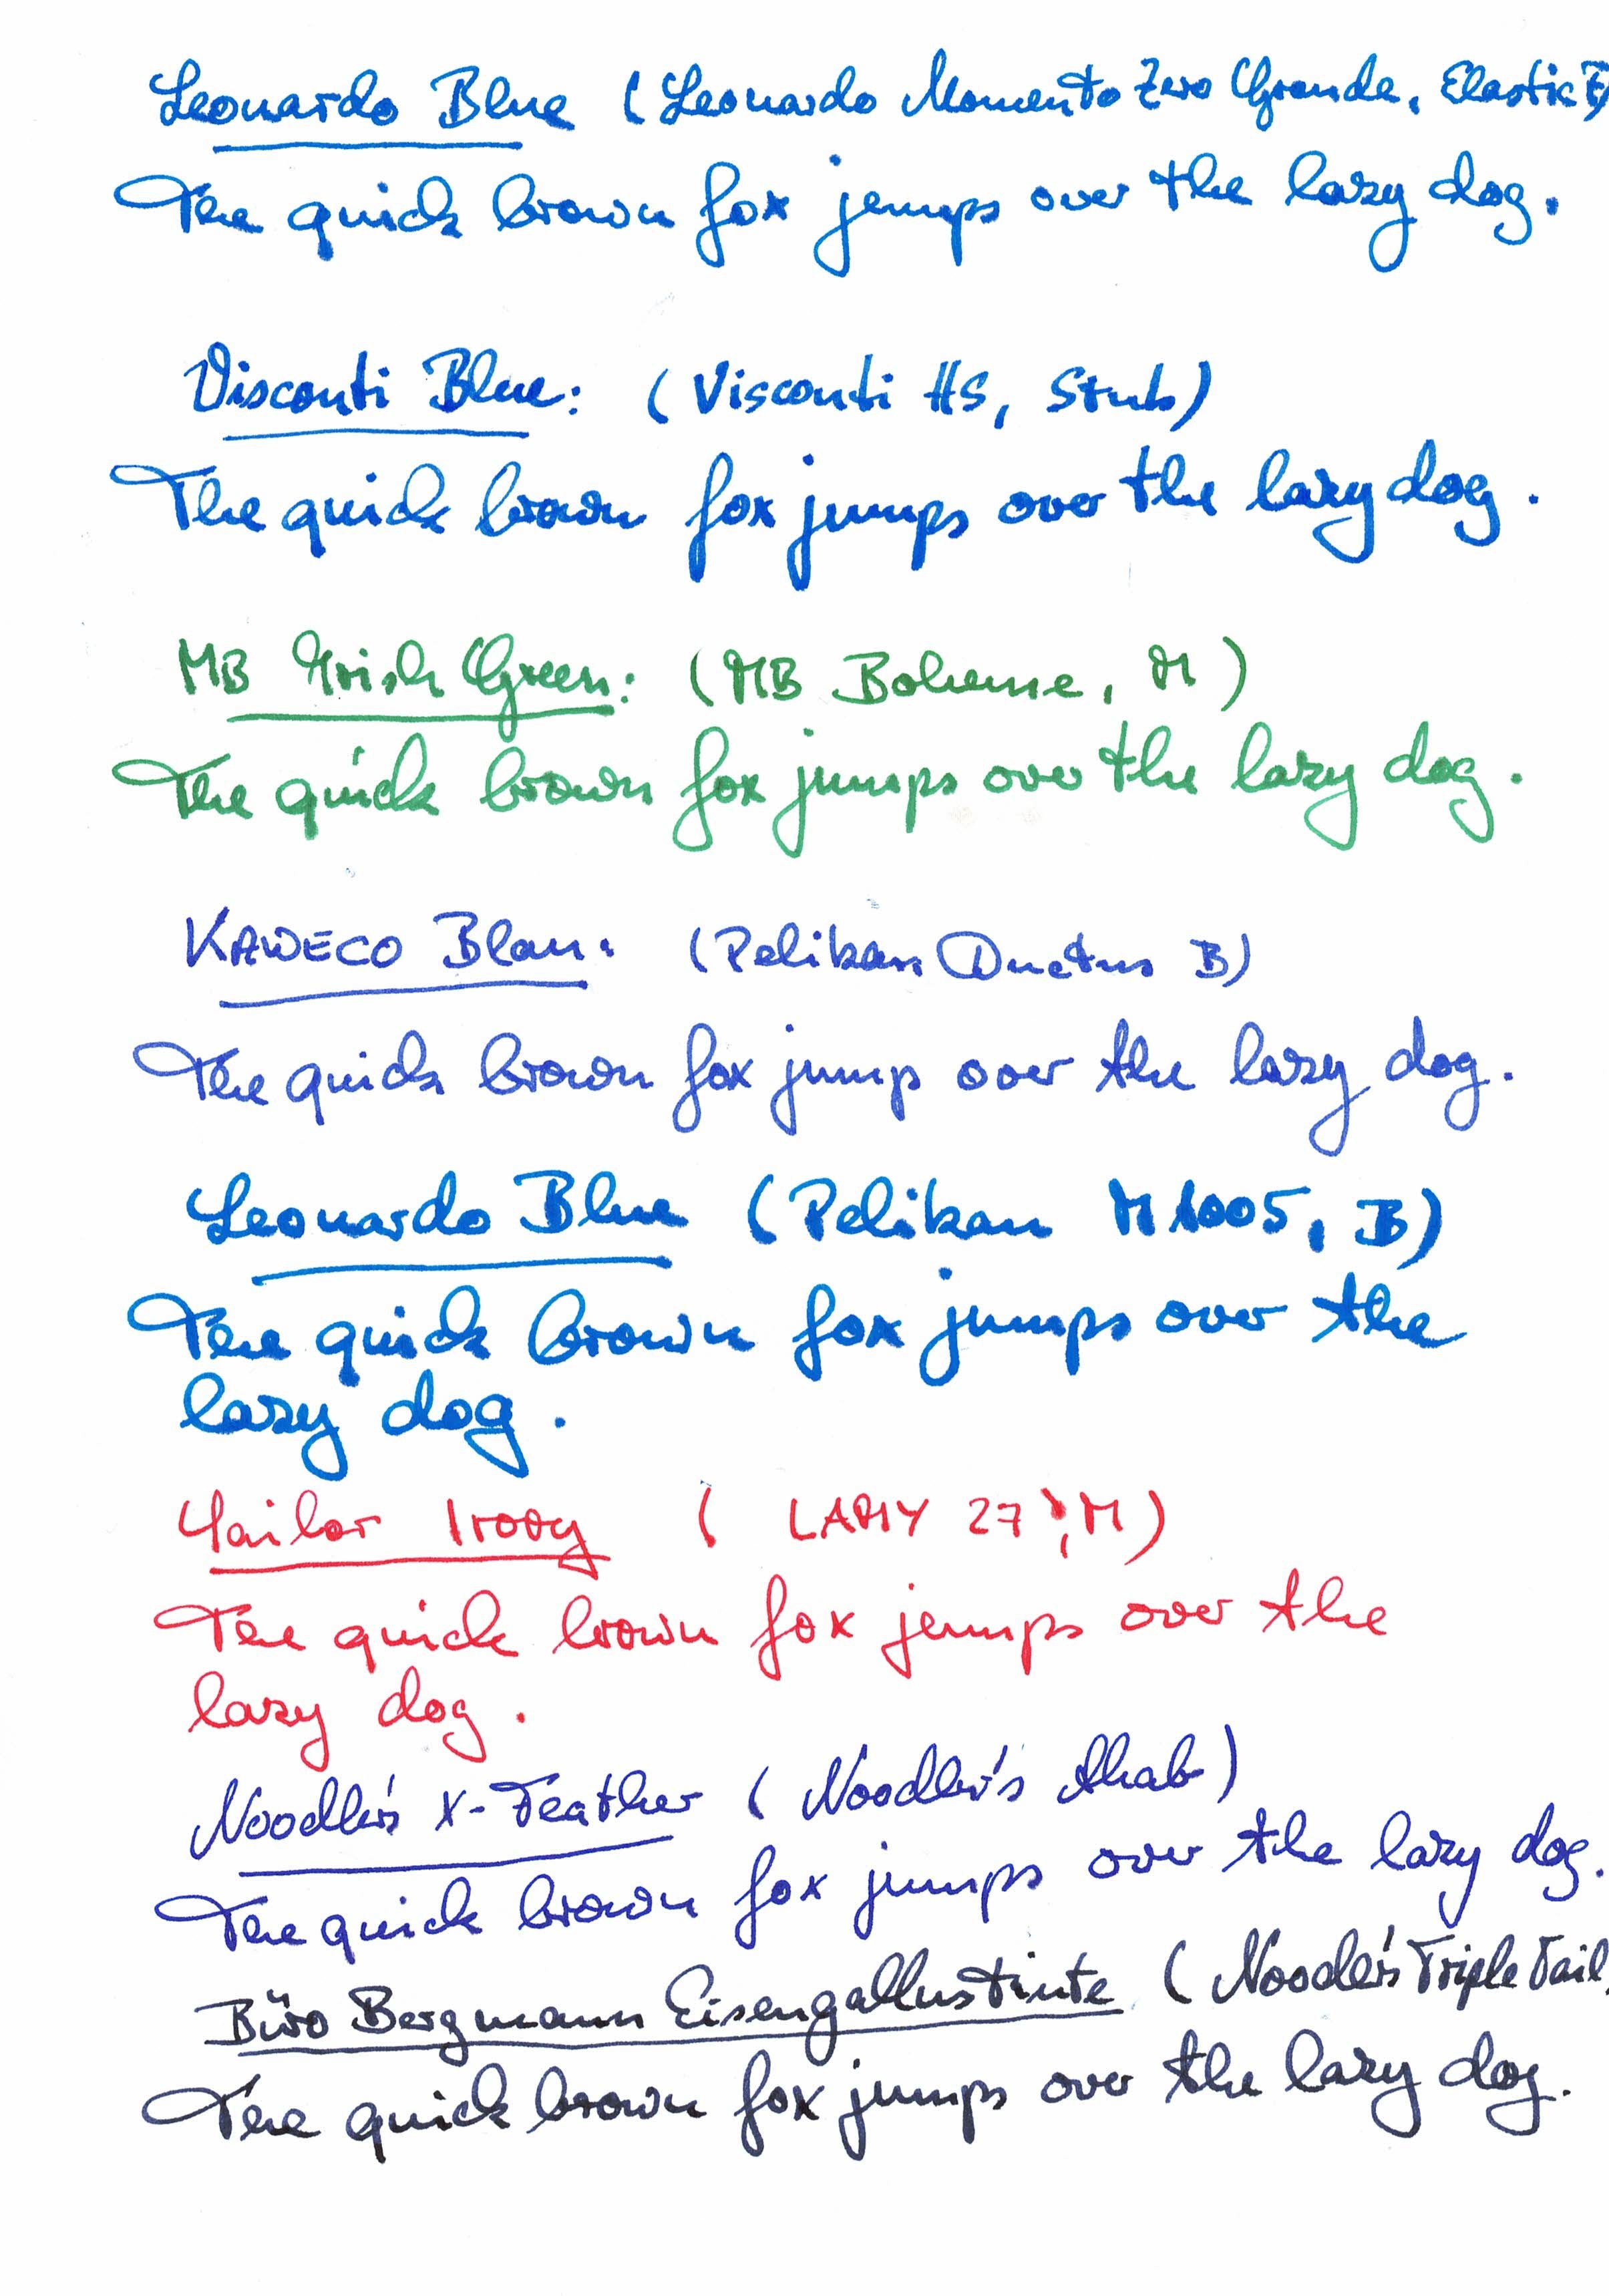 Leonardo Blue (Leonardo Momento Zero Grande, Elastic F)
The quick brown fox jumps over the lazy dog.
Visconti Blue: (Visconti HS, Stub)
The quick brown fox jumps over the lazy dog.
MB Irish Green: (MB Boheme, M)
The quick brown fox jumps over the lazy dog.
KAWECO Blau: (Pelikan Ductus B)
The quick brown fox jump over the lazy dog.
Leonardo Blue (Pelikan M1005, B)
The quick brown fox jumps over the
lazy dog.
(LAMY 27, M)
The quick brown fox jumps over the
lazy dog.
Noodler's X-Feather (Noodler's Ahab)
The quick brown fox jumps over the lazy dog.
Büro Bergmann Eisengallustinte (Noodler's Triple Tail
The quick brown fox jumps over the lazy dog.